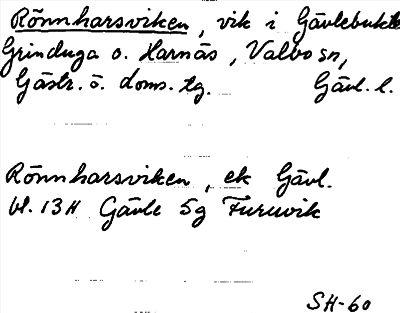 Rönnharsviken, vik i Gävlebukte
Grinduga o. Harnäs, Valbo sn,
Gästr. ö. doms. tg. Gävl. l.
Rönnharsviken, ek Gävl.
bl. 13H Gävle 5g Furuvik
SH-60